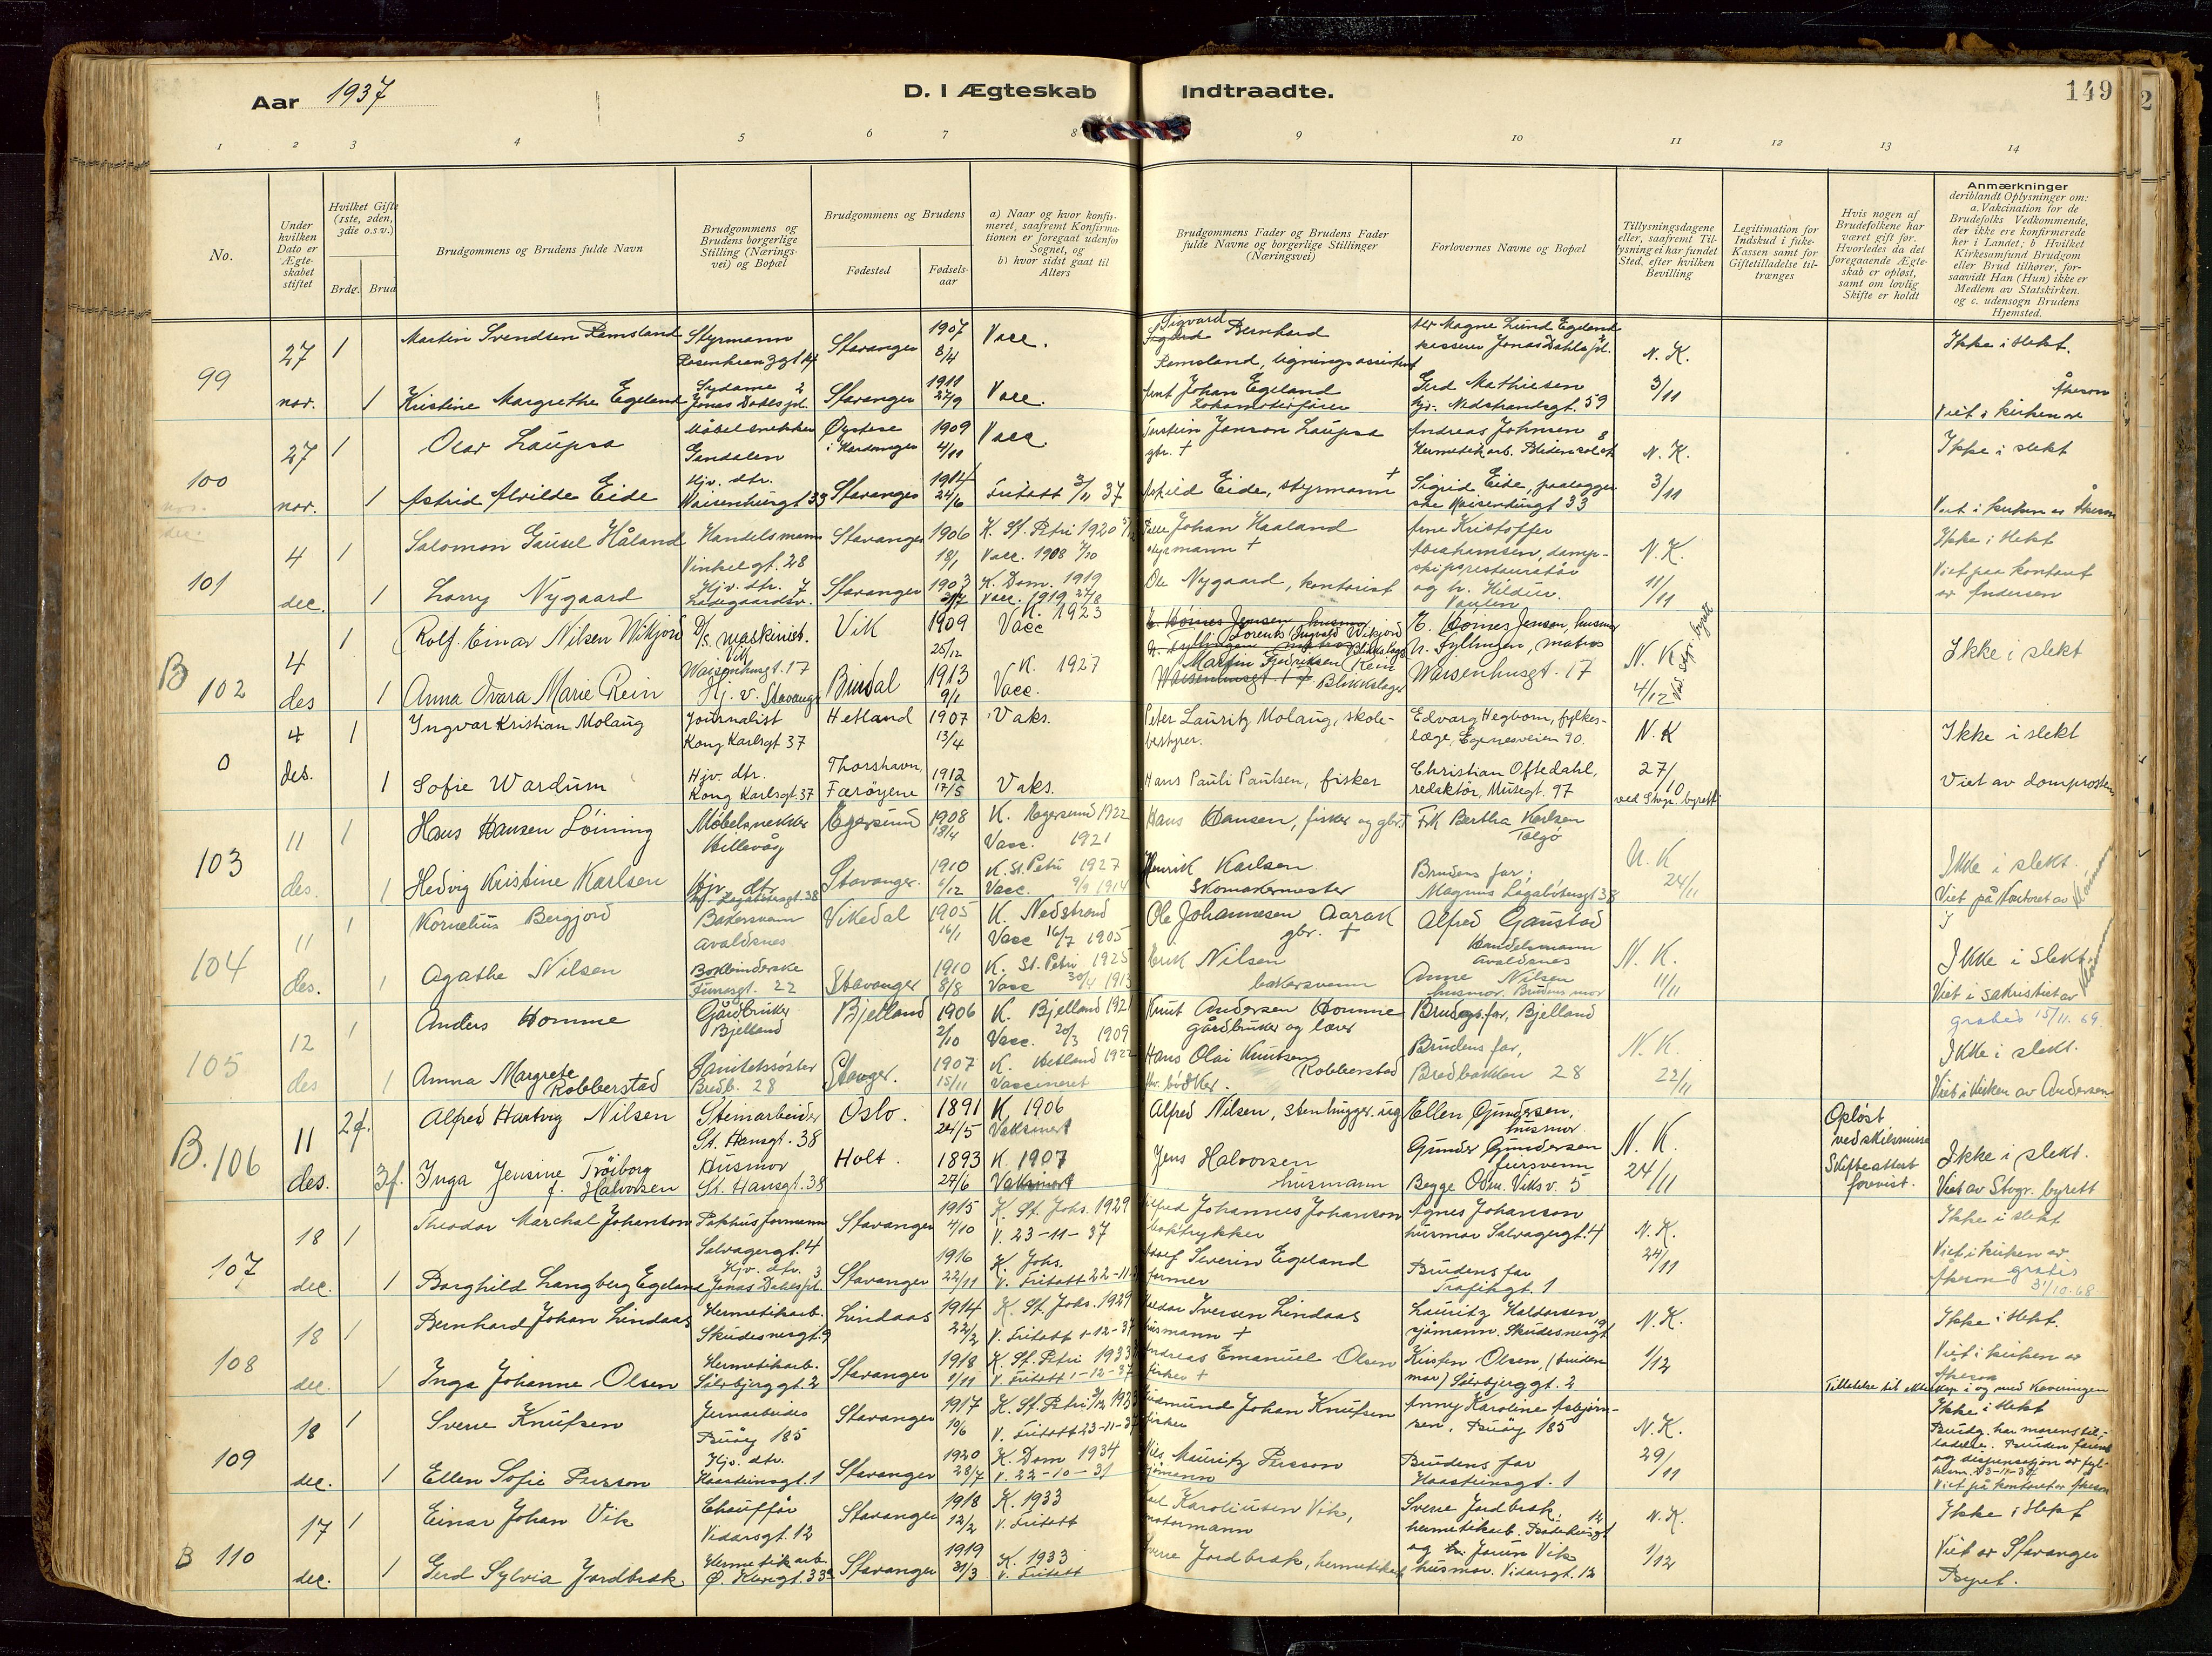 Aar 1937
D. I Ægteskab Indtraadte.
149
2
1 2 3 4 5 6 7 8 9 10 11 12 13 14
No.
Under hvilken Dato er Ægteskabet stiftet
Hvilket Gifte (1ste, 2den, 3die o.s.v.)
Brdg. Brud
Brudgommens og Brudens fulde Navn
Brudgommens og Brudens borgerlige Stilling (Næringsvei) og Bopæl
Brudgommens og Brudens
Fødested
Fødselsaar
a) Naar og hvor konfirmeret, saafremt Konfirmationen er foregaaet udenfor Sognet, og
b) hvor sidst gaat til Alters
Brudgommens Fader og Brudens Fader fulde Navne og borgerlige Stillinger (Næringsvei)
Forlovernes Navne og Bopæl
Tillysningsdagene eller, saafremt Tillysning ei har fundet Sted, efter hvilken Bevilling
Legitimation for Indskud i fuke-Kassen samt for Giftetilladelse tiltrænges
Hvis nogen af Brudefolkene har været gift før. Hvorledes da det foregaaende Ægteskab er opløst, samt om lovlig Skifte er holdt
Anmærkninger
deriblandt Oplysninger om: a. Vakcination for de Brudefolks Vedkommende, der ikke ere konfirmerede her i Landet; b Hvilket Kirkesamfund Brudgom eller Brud tilhører, forsaavidt Han (Hun) ikke er Medlem av Statskirken. og c. udensogn Brudens Hjemsted.
99
27 nov.
1 Martin Svendsen Remsland
Styrmann
Rosenkranzgt 14
Stavanger
1907 8/4
Vacc.
Sigvard Bernhard
Remsland, ligningsassistent
Magne Lund Egeland
kasserer Jonas Dahls pl. 2
N. K.
3/11
Ikke i slekt.
1 Kristine Margrethe Egeland
Sydame
Jonas Dahls pl. 2
Stavanger
1911 27/9
Vacc.
Johan Egeland
Lokomotivfører
Gerd Mathiesen
hjv. Nedstrandsgt. 59
Viet i kirken av Åkeson
100
27 nov.
1 Olav Laupsa
Møbelsnekker
Gandalen
Øystese i Hardanger
1909 4/11
Vacc.
Torstein Janson Laupsa
gbr. †
Andreas Johnsen
Hermetikarb.
N. K.
3/11
Ikke i slekt
1 Astrid Alvilde Eide
Hjv. dtr.
Waisenhusgt 33
Stavanger
1914 24/6
Fritatt 3/11 37
Eide, styrmann †
Sigrid Eide, paalegger
ske Waisenhusgt 33
Viet i kirken av Åkeson
101
4 dec.
1 Salomon Gausel Håland
Handelsmann
Vinkelgt. 28
Stavanger
1906 18/1
K. St. Petri 1920
Vacc. 1908 7/10
Johan Haaland
styrmann †
Arne Kristoffer
Abrahamsen, dampskipsrestauratør
N. K.
11/11
Ikke i slekt
1 Larry Nygaard
Hjv. dtr.
Ladegaardsv. 7
Stavanger
1903
K. Dom. 1919
Vacc. 1919 27/8
Ole Nygaard, kontorist
og h. Hildur.
Vaulen
Viet paa kontoret
av Andersen
B 102
4 des
1 Rolf Einar Nilsen Wikjord
D/s maskinist.
Vik
Waisenhusgt. 17
Vik
1909 25/12
K. 1923
Vacc
Lorents Ingvald Wikjord
Blikkslager
E. Hornes Jensen, husmor
N. Fyllingen, matros
N. K
4/12
ved Stvgr. byrett
Ikke i slekt
1 Anna Ovara Marie Rein
Hj. v. Stavanger
Bindal
1913 9/1
K. 1927
Vacc.
Martin Fredriksen Rein
Blikkslager
Waisenhusgt. 17
0
4 des.
1 Ingvar Kristian Molaug
Journalist
Kong Karlsgt 37
Hetland
1907 13/4
Vaks.
Peter Lauritz Molaug, skolebestyrer.
Edvarg Hegbom, fylkeslæge, Egenesveien 90.
N. K
27/10
ved Stvgr. byrett
Ikke i slekt
1 Sofie Wardum
Hjv. dtr.
Kong Karlsgt. 37
Thorshavn, Færøyene
1912 17/5
Vaks.
Hans Pauli Paulsen, fisker
Christian Oftedahl,
redaktør, Musegt. 97
Viet av domprosten
103
11 des.
1 Hans Hansen Løining
Møbelsnekker
Hillevåg
Egersund
1908 18/4
K. Egersund 1922
Vacc. 1921
Hans Hansen, fisker og gbr.
Frk Bertha Karlsen
Talgø
N. K
24/11
Ikke i slekt.
1 Hedvig Kristine Karlsen
Hjv. dtr
M. Lagabøtersgt. 38
Stavanger.
1910 1/12
K. St. Petri 1927
Vacc. 9/9 1914
Henrik Karlsen
Skomakermester
Brudens far;
Magnus Lagabøtersgt 38
Viet på kontoret av
104
11 des.
1 Kornelius Bergjord
Bakersvenn
Avaldsnes
Vikedal
1905 16/1
K. Nedstrand
Vacc 16/7 1905
Ole Johannesen Aarak
gbr. †
Alfred Gaustad
Handelsmann
Avaldsnes
N. K.
11/11
Ikke i slekt.
1 Agathe Nilsen
Bokbinderske
Tunesgt. 22
Stavanger
1910 8/8
K. St. Petri 1925
Vacc 30/4 1913
Erik Nilsen
bakersvenn
Anne Nilsen
husmor. Brudens mor
Viet i sakristiet av
105
12 des
1 Anders Homme
Gårdbruker
Bjelland
Bjelland
1906 2/10
K. Bjelland 1921
Vacc. 20/3 1909
Knut Andersen Homme
gårdbruker og lærer
Brudgs. far, Bjelland
N. K.
22/11
gratis 15/11. 69.
Ikke i slekt.
1 Anna Margrete Robberstad
Sanitetssøster
Bredb. 28
Stavger.
1907 15/11
K. Hetland 1922
Vaccineret
Hans Olai Knutsen Robberstad
bødker.
Brudens far,
Bredbakken 28
Viet i kirken av Andersen
B. 106
11 des.
2 f. Alfred Hartvig Nilsen
Steinarbeider
St. Hansgt. 38
Oslo.
1891 24/5
K, 1906
Vaksinert
Alfred Nilsen, stenhugger
Ellen Gundersen,
husmor.
N. K.
24/11
Opløst
ved skilsmisse
Skifteattest
forevist.
Ikke i slekt.
3 f. Inga Jensine Trøiborg
f. Halvorsen
Husmor
St. Hansgt. 38
Holt.
1893 27/6
K. 1907
Vaksinert
Jens Halvorsen
husmann
Gunder Gundersen
Begge Odm. Viksv. 5
Viet av Stvgr. byrett
107
18 dec.
1 Theodor Marchal Johanson
Paphusformann
Salvagergt. 4
Stavanger
1915 4/10
K. St. Johs. 1929
V. 23-11-37
Johannes Johanson
boktrykker
Agnes Johanson
husmor Salvagergt. 4
N. K.
24/11
Ikke i slekt
1 Borghild Langberg Egeland
Hjv. dtr.
Jonas Dahls pl. 3
Stavanger
1916 22/11
K. Johs.
V. Fritatt 22-11-
Severin Egeland
former
Brudens far
Trafikgt. 1
Viet i kirken av
Åkeson gratis
31/10.68
108
18 dec.
1 Bernhard Johan Lindaas
Hermetikarb.
Skudesnesgt. 9
Lindaas
1914 22/2
K. St. Johs. 1929
V. Fritatt 1-12-37
Iversen Lindaas
husmann †
Lauritz Haldorsen
sjømann. Skudesnesgt 9
N. K.
1/12
Ikke i slekt.
1 Inga Johanne Olsen
Hermetikarb.
Sølvbjerggt. 2
Stavanger
1918 1/11
K. St. Petri 1933
V. Fritatt 1-12-37
Andreas Emanuel Olsen
fisker †
Kirsten Olsen, (brudens
mor) Sølvbjerggt. 2
Viet i kirken av
Åkeson
109
18 dec.
1 Sverre Knutsen
Jernarbeider
Buøy 185
Stavanger
1917
K. St. Petri 1933
V. Fritatt 23-11-37
Gudmund Johan Knutsen
fisker
Anny Karoline Asbjørnsen, Buøy 185
N. K.
29/11
Tillatelse til ekteskap i og med kaveringen
Ikke i slekt
Brudg. har morens tilladelse. Bruden farens
og dispensasjon av fylkesm. 23-11-37
1 Ellen Sofie Persson
Hjv. dtr.
Haasteinsgt. 1
Stavanger
1920 28/7
K. Dom 1934
V. 22-10-31
Nils Mauritz Persson
sjømann
Brudens far
Haasteinsgt. 1
Viet på kontoret av Åkeson
B 110
17 dec.
1 Einar Johan Vik
Chauffør
Vidarsgt. 12
Stavanger
1918 12/2
K. 1933
V. Fritatt
Karl Karoliussen Vik,
motormann
Sverre Jordbrek
hermetikarb.
N. K.
1/12
Ikke i slekt
1 Gerd Sylvia Jordbrek
Hermetikarb.
Ø. Kleivgt. 33a
Stavanger
1919 31/3
K. 1933
V. Fritatt
Sverre Jordbrek, hermetikarb
og Vik
husmor. Vidarsgt. 12
Viet av Stavanger
Byret.